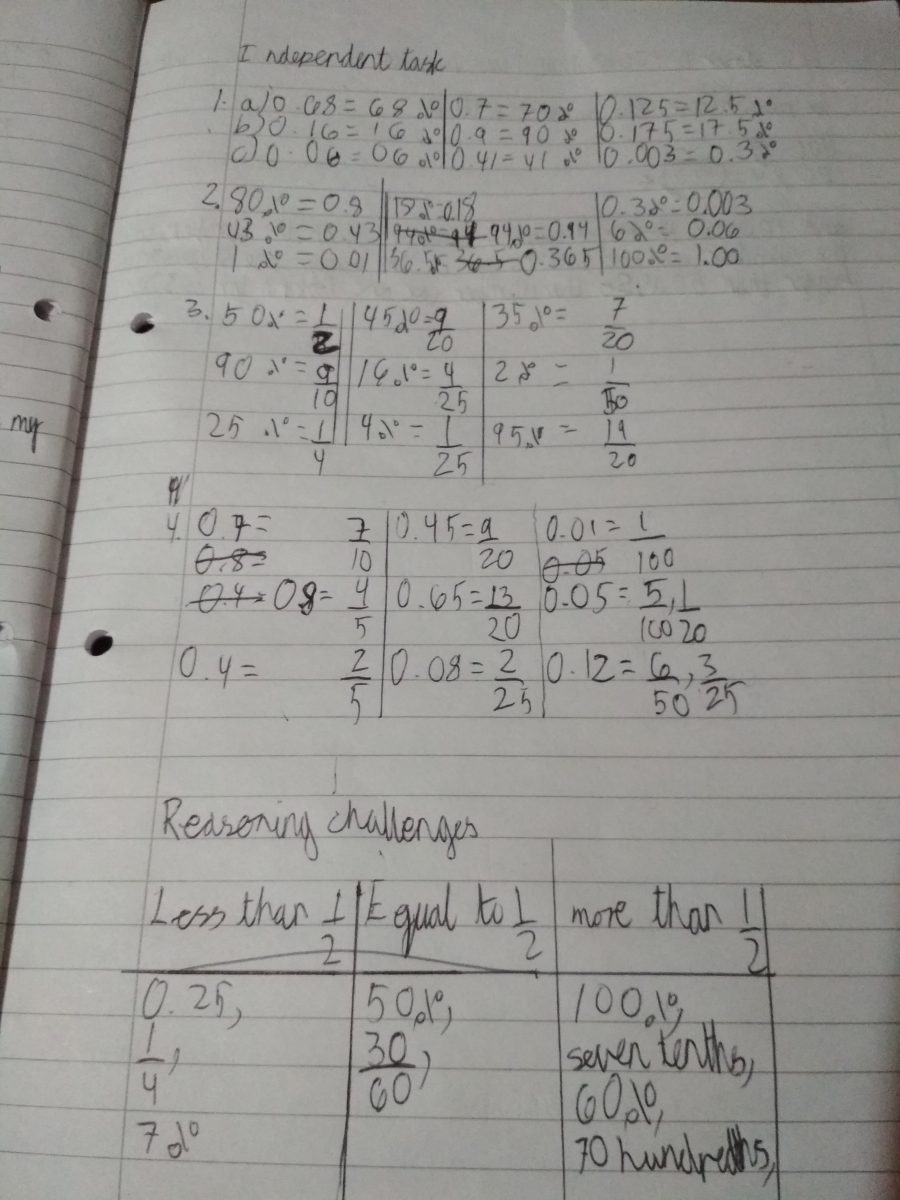 Independent task
1. a) 0.68 = 68 % | 0.7 = 70 % | 0.125 = 12.5 %
b) 0.16 = 16 % | 0.9 = 90 % | 0.175 = 17.5 %
c) 0.06 = 06 % | 0.41 = 41 % | 0.003 = 0.3 %
2. 80% = 0.8 | 18% = 0.18 | 0.3% = 0.003
43 % = 0.43 | 94% = 0.94 | 6% = 0.06
1 % = 0.01 | 36.5% 0.365 | 100% = 1.00
3. 50% = 1/2 | 45% = 9/20 | 35% = 7/20
90 % = 9/10 | 16% = 4/25 | 2% = 1/50
25 % = 1/4 | 4% = 1/25 | 95% = 19/20
4. 0.7 = 7/10 | 0.45 = 9/20 | 0.01 = 1/100
0.8= 0.05
0.4= 08 = 4/5 | 0.65 = 13/20 | 0.05 = 5/100, 1/20
0.4 = 2/5 | 0.08 = 2/25 | 0.12 = 6/50, 3/25
Reasoning challenges
Less than 1/2 | Equal to 1/2 | more than 1/2
0.25, | 50%, | 100%,
1/4, | 30/60, | seven tenths,
60%,
7% | 70 hundredths,
my